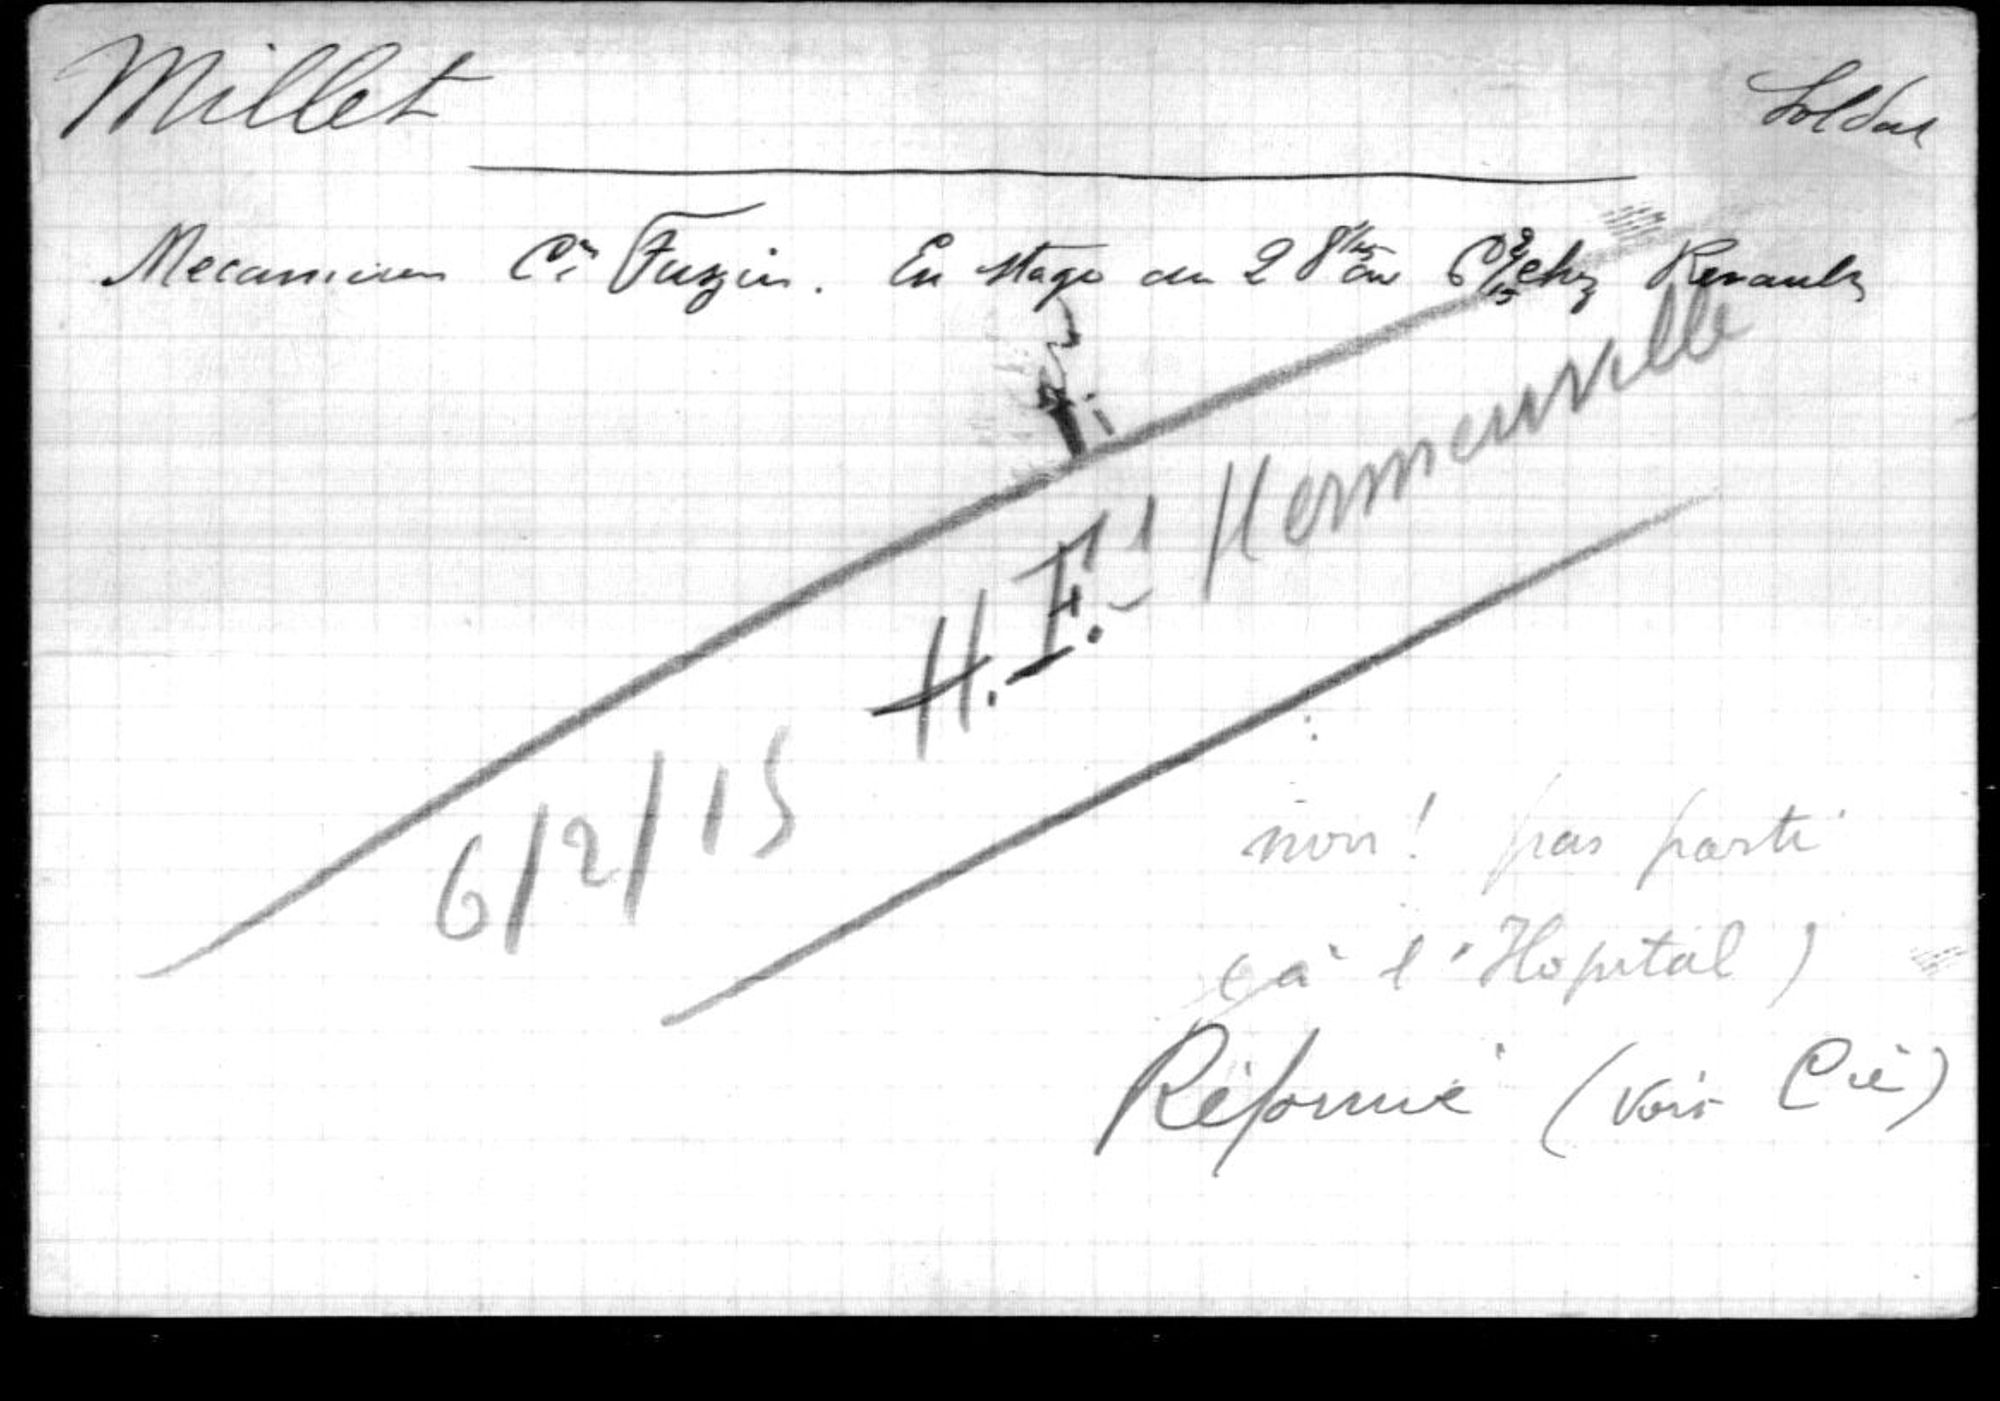 Millet Soldat
Mecanicien Cie Fuzzin. En stage du 28 au chez Renault
6/2/15 H.F! Hermeuville
non! pas parti
(à l'Hopital)
Réformé (voir Cie)